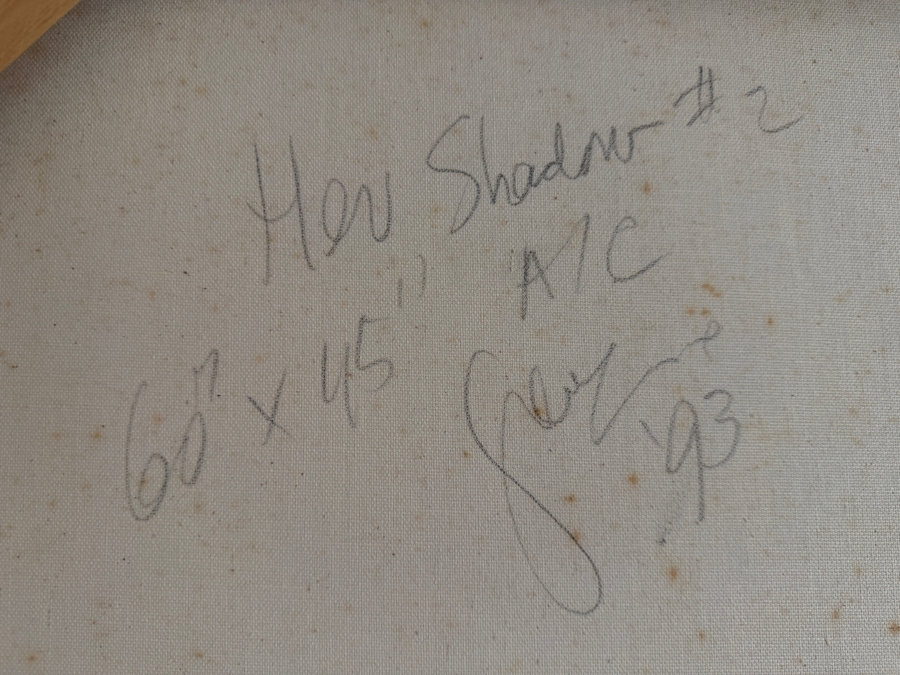 Her Shadow # 2
A/C
60" x 45"
'93